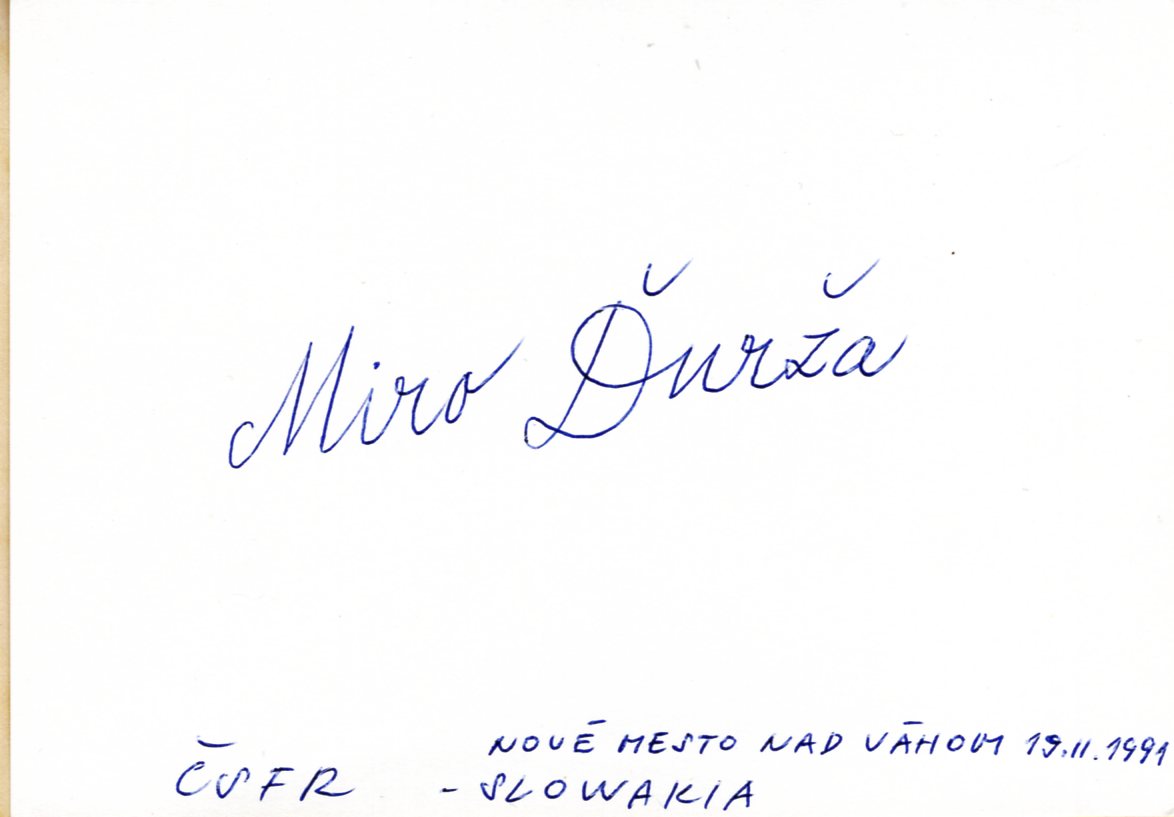 Miro Ďurža
NOVÉ MESTO NAD VÁHOM 19.11.1991
ČSFR - SLOWAKIA